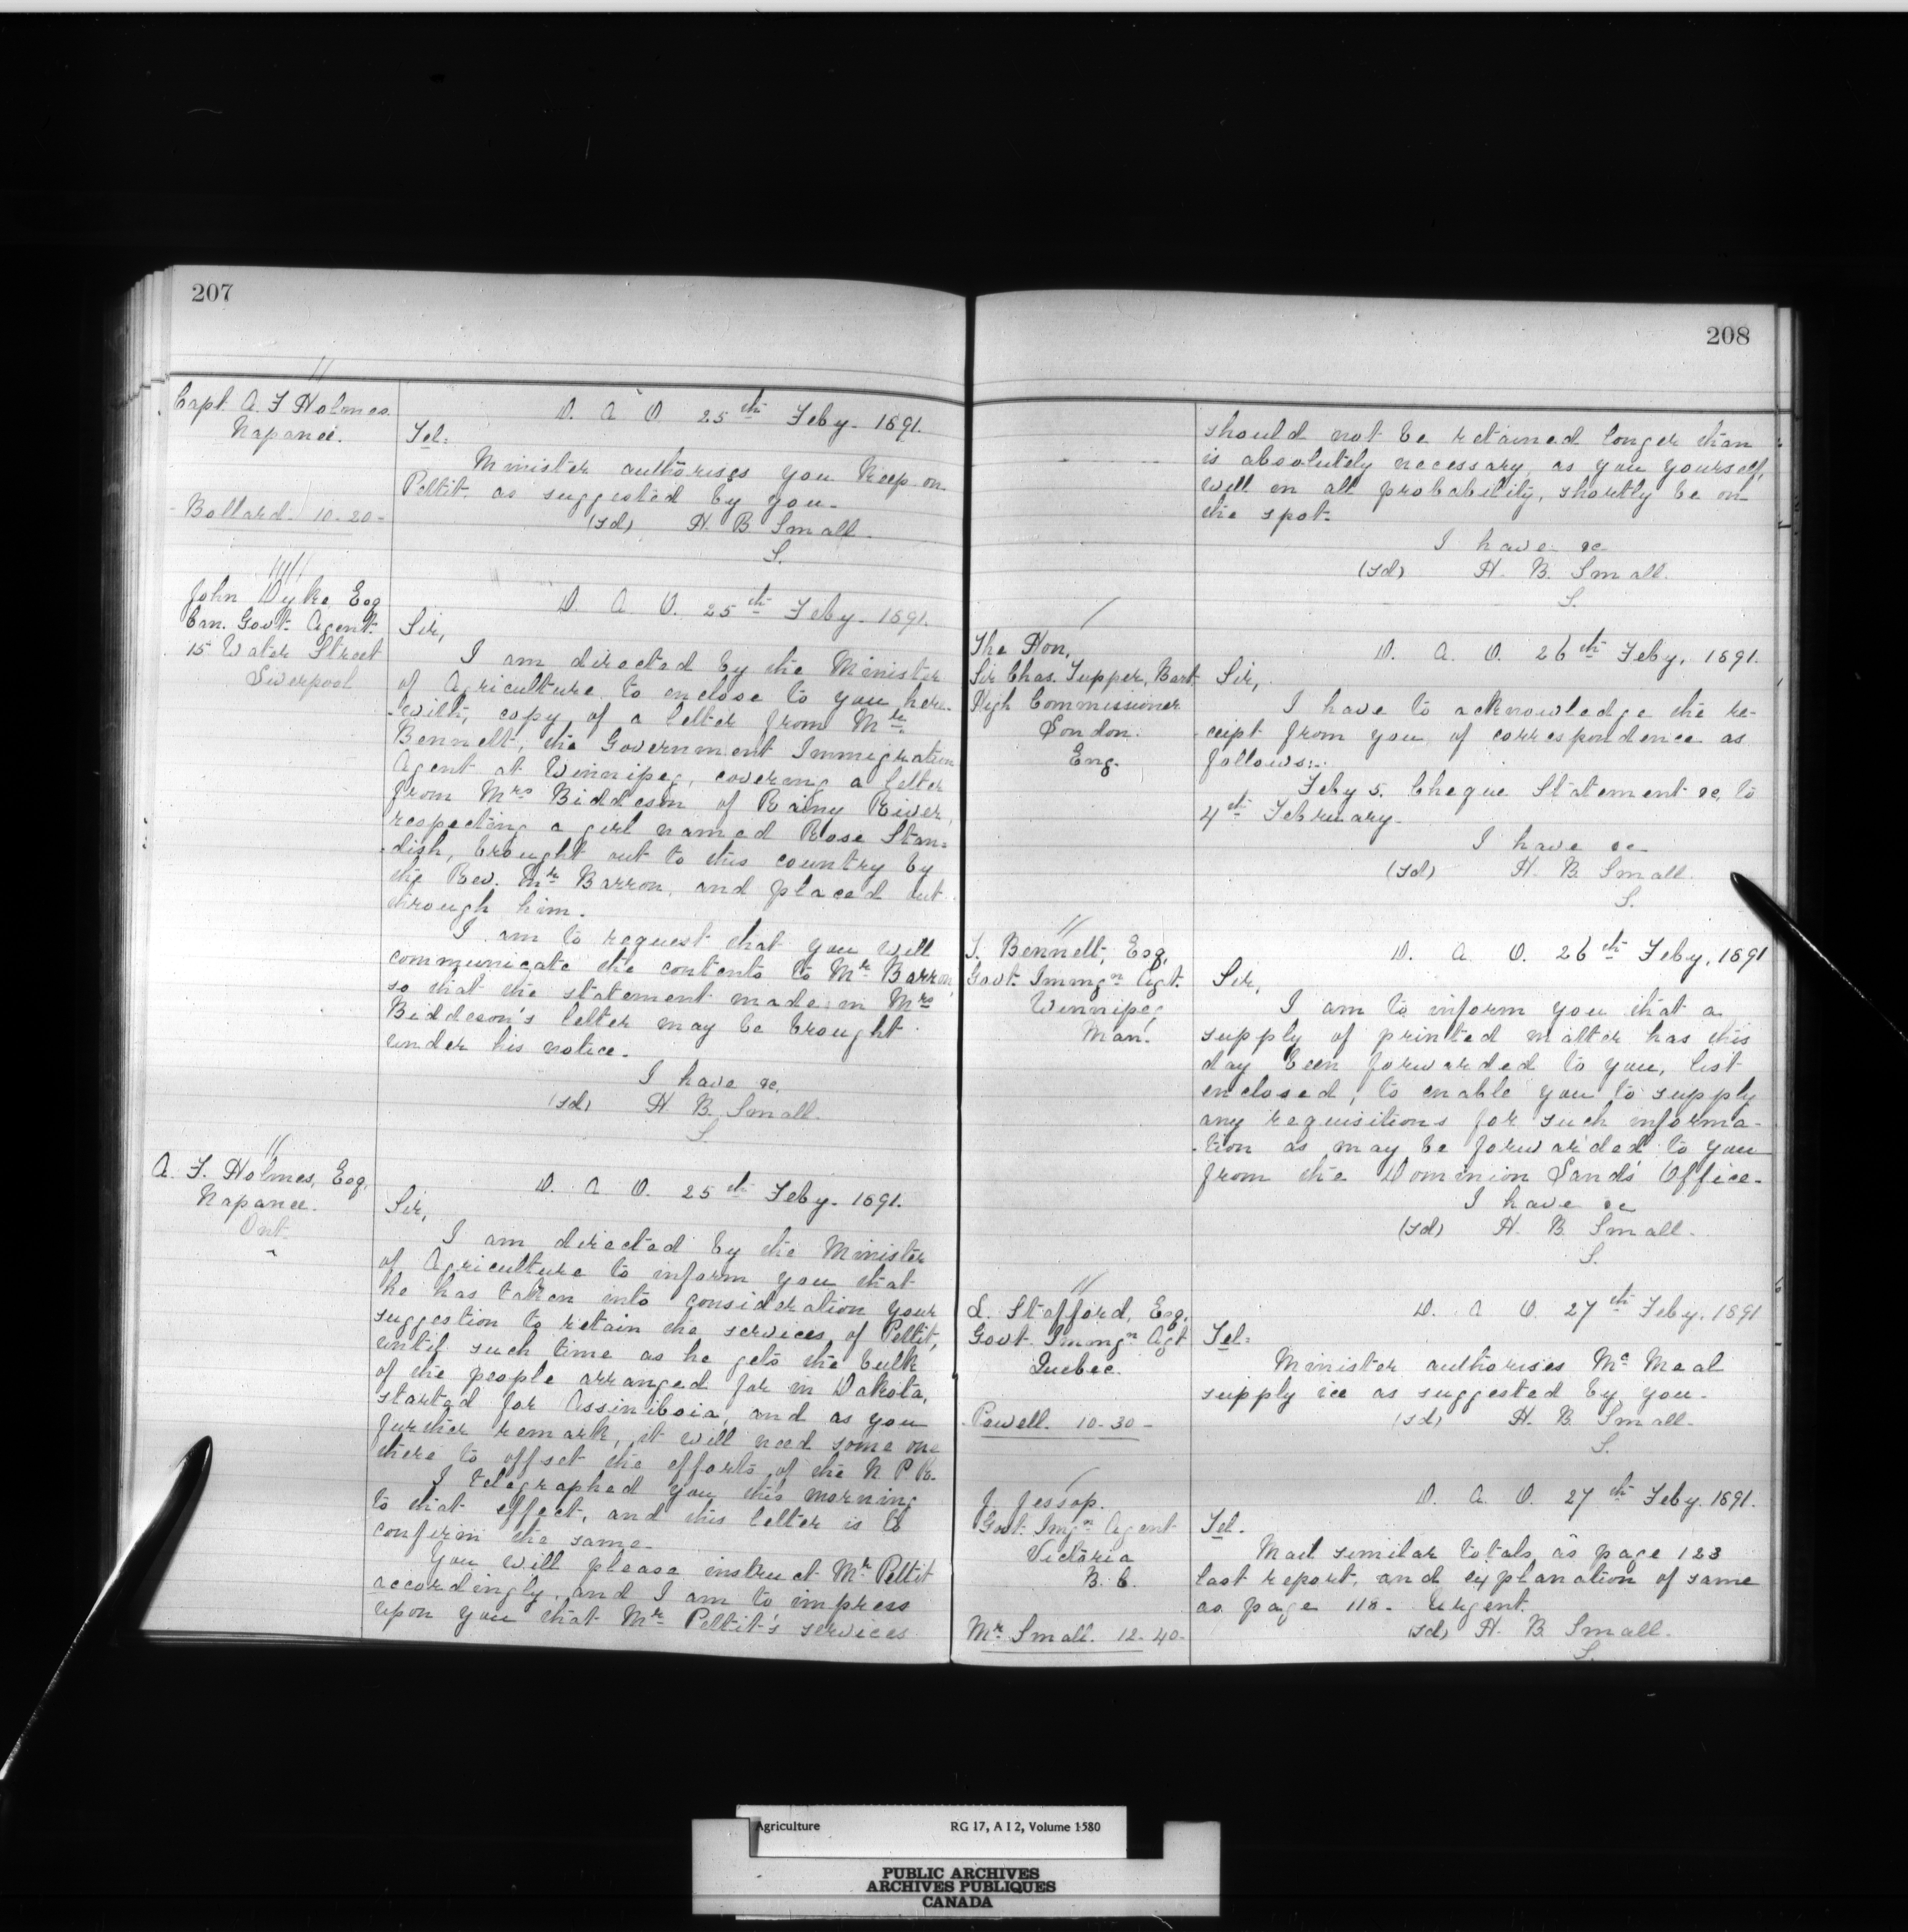 207
Capt. A. F Holmes.
Napanee.
Bollard. 10-20-
D. A O. 25th Feby. 1891.
Tel:
Minister authorises you keep on
Pettit as suggested by you.
(sd) H. B. Small.
S.
John Dyke, Esq
Can. Govt. Agent.
15 Water Street
Liverpool
D. A. O. 25th Feby. 1891.
Sir,
I am directed by the Minister
of Agriculture to enclose to you here-
-with, copy of a letter from Mr.
Bennett, the Government Immigration
Agent at Winnipeg, covering a letter
from Mrs Biddeson of Rainy River,
respecting a girl named Rose Stan=
-dish, brought out to this country by
the Rev. Mr. Barron, and placed out
through him.
I am to request that you will
communicate the contents to Mr Barron,
so that the statement made in Mrs
Biddeson's letter may be brought
under his notice.
I have &c,
(sd) H B. Small.
S.
A. F. Holmes, Esq,
Napanee.
Ont.
D. A O. 25th Feby. 1891.
Sir,
I am directed by the Minister
of Agriculture to inform you that
he has taken into consideration your
suggestion to retain the services of Pettit,
until such time as he gets the bulk
of the people arranged for in Dakota,
started for Assiniboia, and as you
further remark, it will need some one
there to offset the efforts of the N. P R.
I telegraphed you this morning
to that effect, and this letter is to
confirm the same.
You will please instruct Mr. Pettit
accordingly, and I am to impress
upon you that Mr. Pettit's services
208
should not be retained longer than
is absolutely necessary, as you yourself,
will in all probability, shortly be on
the spot.
I have &c
(sd) H. B. Small.
S.
The Hon.
Sir Chas. Tupper, Bart,
High Commissioner
London.
Eng.
D. A. O. 26th Feby. 1891.
Sir,
I have to acknowledge the re-
-ceipt from you of correspondence as
follows:-
Feby 5. Cheque Statement &c, to
4th February.
I have &c
(sd) H. B Small.
S.
T. Bennett, Esq,
Govt. Immgn Agt.
Winnipeg
Man.
D. A. O. 26th Feby, 1891
Sir,
I am to inform you that a
supply of printed matter has this
day been forwarded to you, list
enclosed, to enable you to supply
any requisitions for such informa-
-tion as may be forwarded to you
from the Dominion Lands' Office.
I have &c
(sd) H B. Small.
S.
L. Stafford, Esq.
Govt. Immgn Agt
Quebec.
Powell. 10-30-
D. A O. 27th Feby. 1891
Tel:
Minister authorises Mc Neal
supply ice as suggested by you.
(sd) H. B. Small.
S.
J. Jessop.
Govt. Imgn Agent
Victoria
B. C.
Mr. Small. 12-40-
D. A. O. 27th Feby. 1891.
Tel.
Mail similar totals as page 123
last report, and explanation of same
as page 118. Urgent.
(sd) H. B Small.
S.
Agriculture RG 17, A I 2, Volume 1580
PUBLIC ARCHIVES
ARCHIVES PUBLIQUES
CANADA